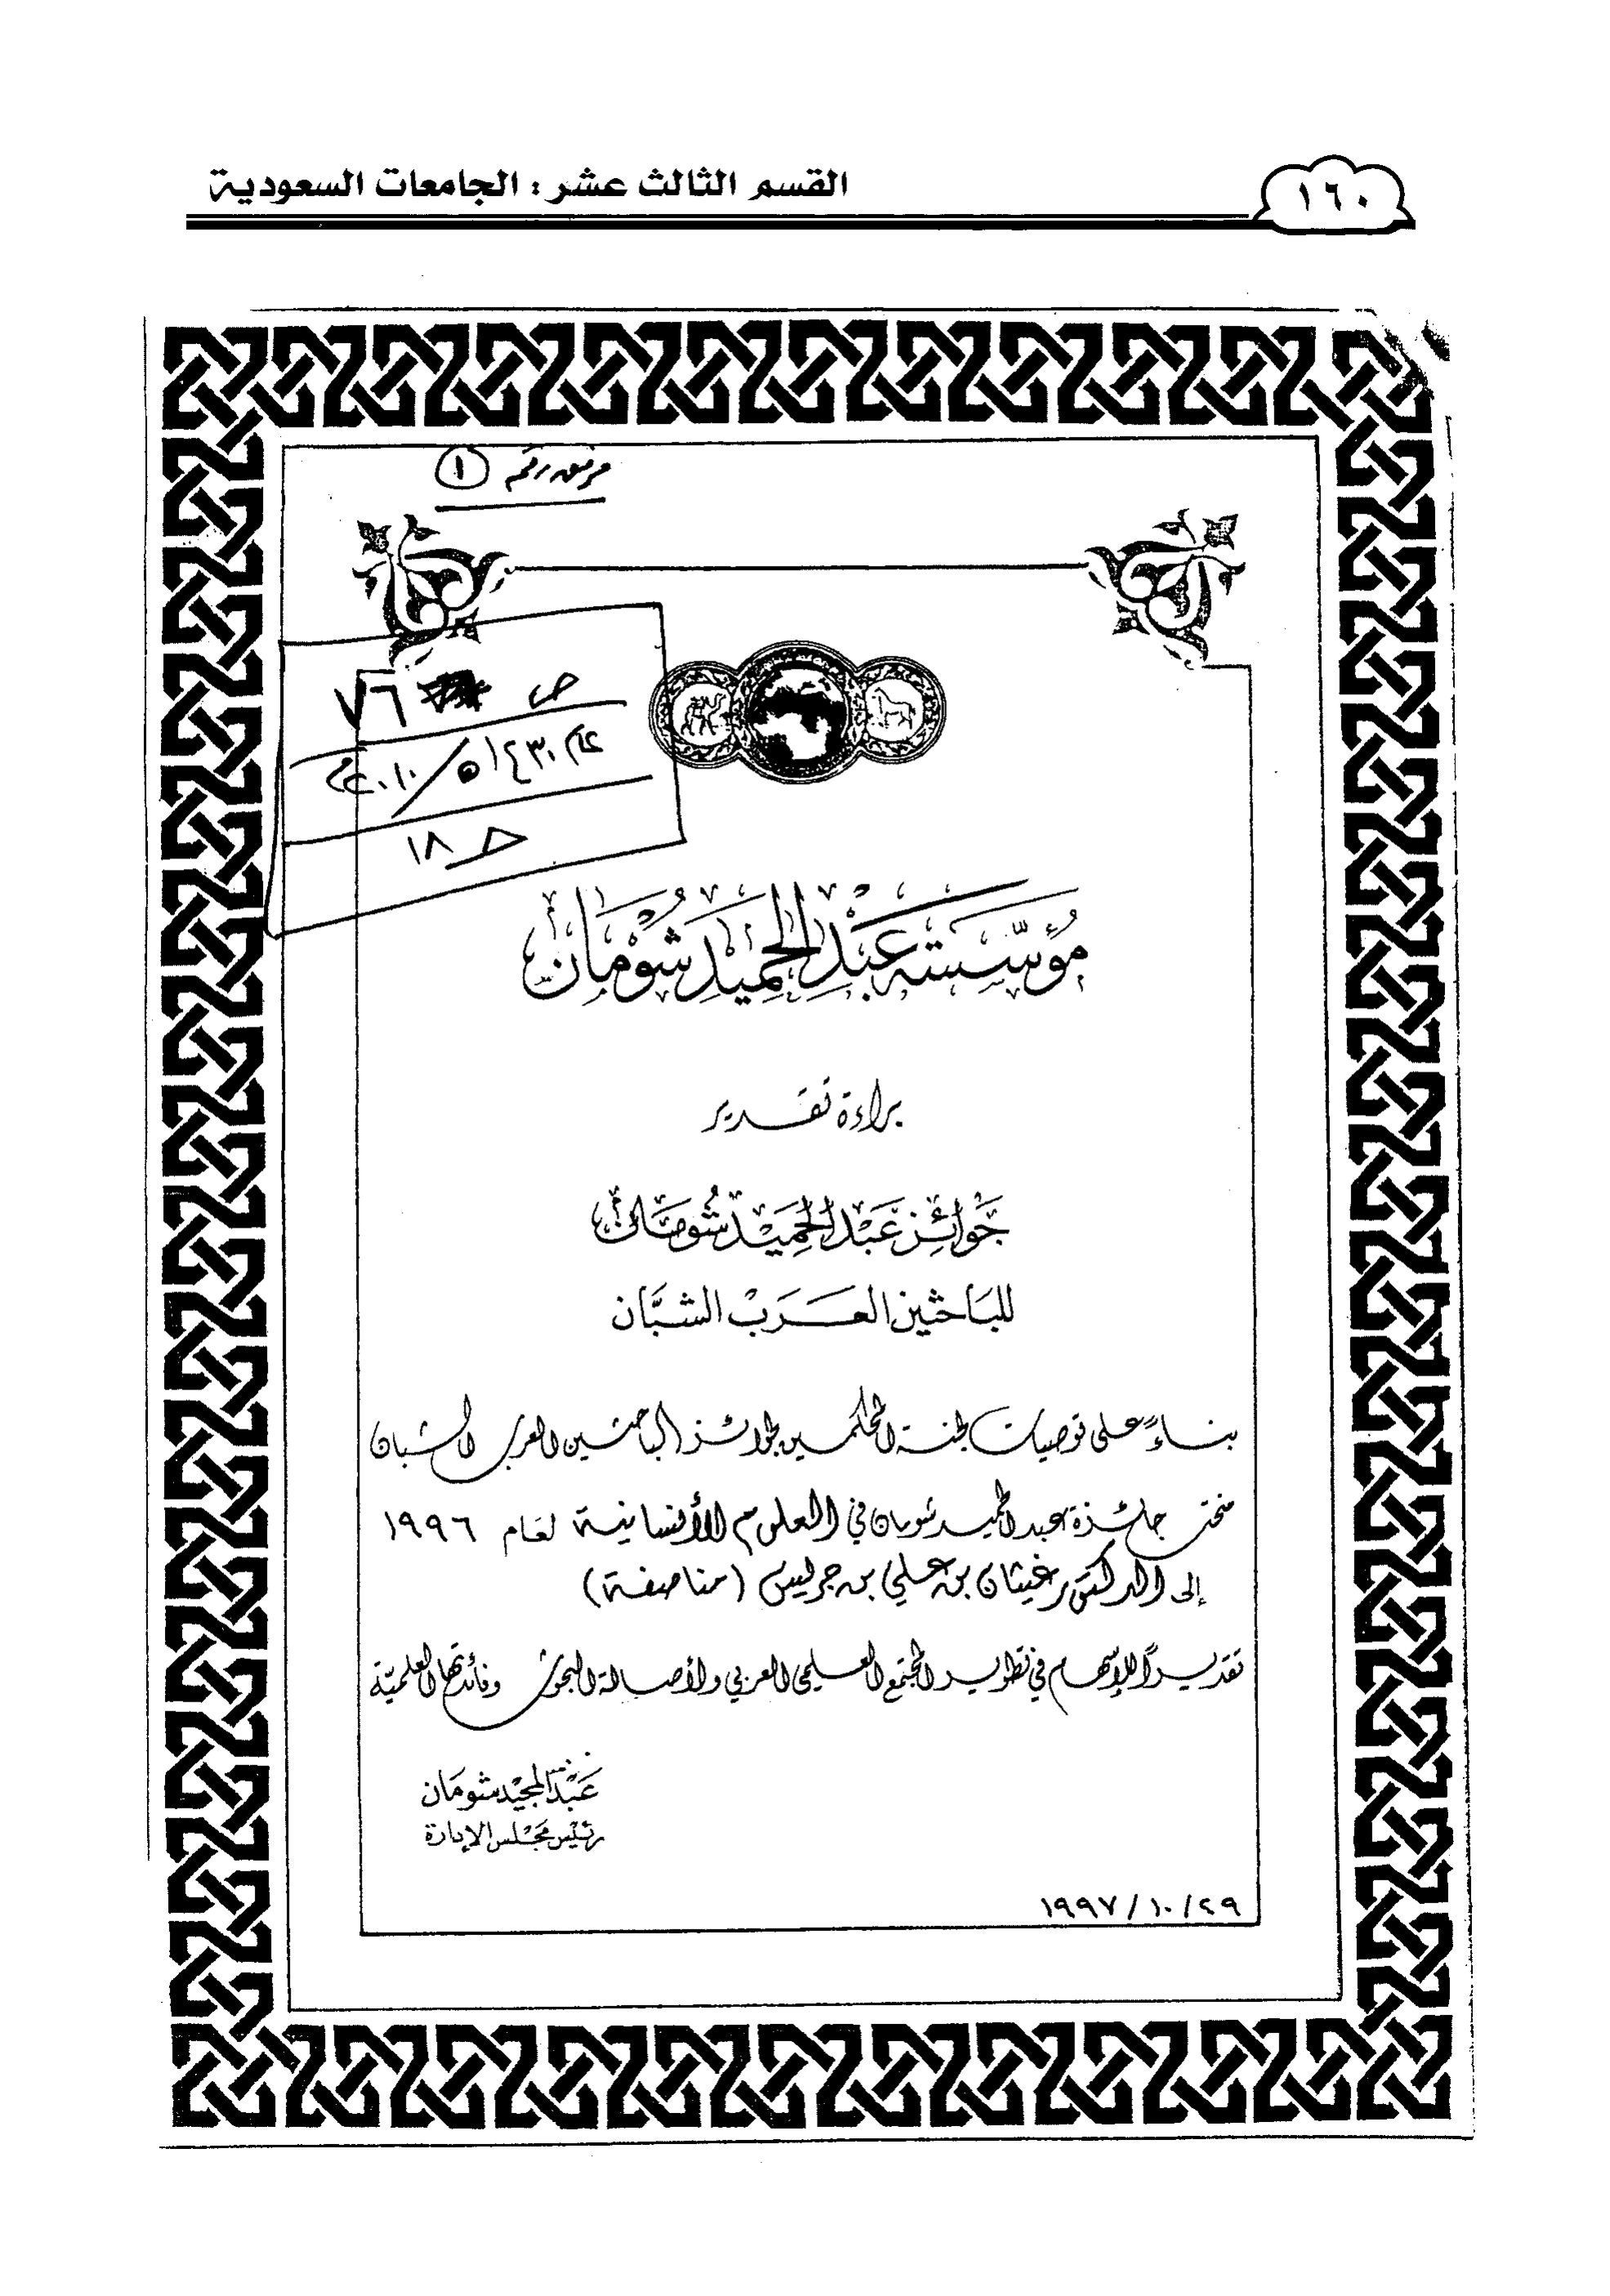 القسم الثالث عشر : الجامعات السعودية
١٦٠
مرفق رقم ١
ص ٧٦
عام ١٤٣٠هـ/٢٠١٠م
ط ١٨
مُؤسّسَة عَبْد الحَمِيد شُومَان
براءة تقدير
جَوائِز عَبْد الحَمِيد شُومَان
للبَاحثين العَرَبْ الشبَّان
بناءً على توصيات لجنة المحكمين لجوائز الباحثين العرب الشبان
منحت جائزة عبد الحميد شومان في العلوم الأنسانية لعام ١٩٩٦
إلى الدكتور غيثان بن علي بن جريس (مناصفة)
تقديراً للإسهام في تطوير المجتمع العلمي العربي ولأصالة البحوث وفائدتها العلميّة
عَبْد المجيْد شومَان
رئيْس مَجْلس الإدارة
١٩٩٧/١٠/٢٩